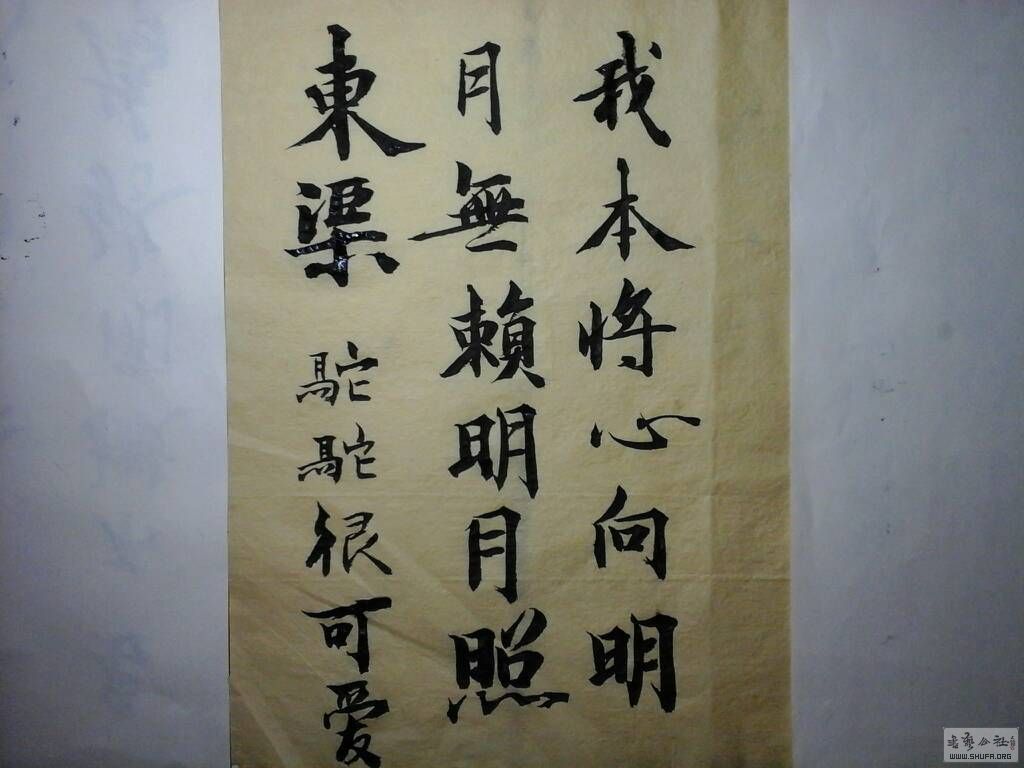 我本将心向明
月無賴明月照
東渠駝駝很可愛
書藝公社
WWW.SHUFA.ORG